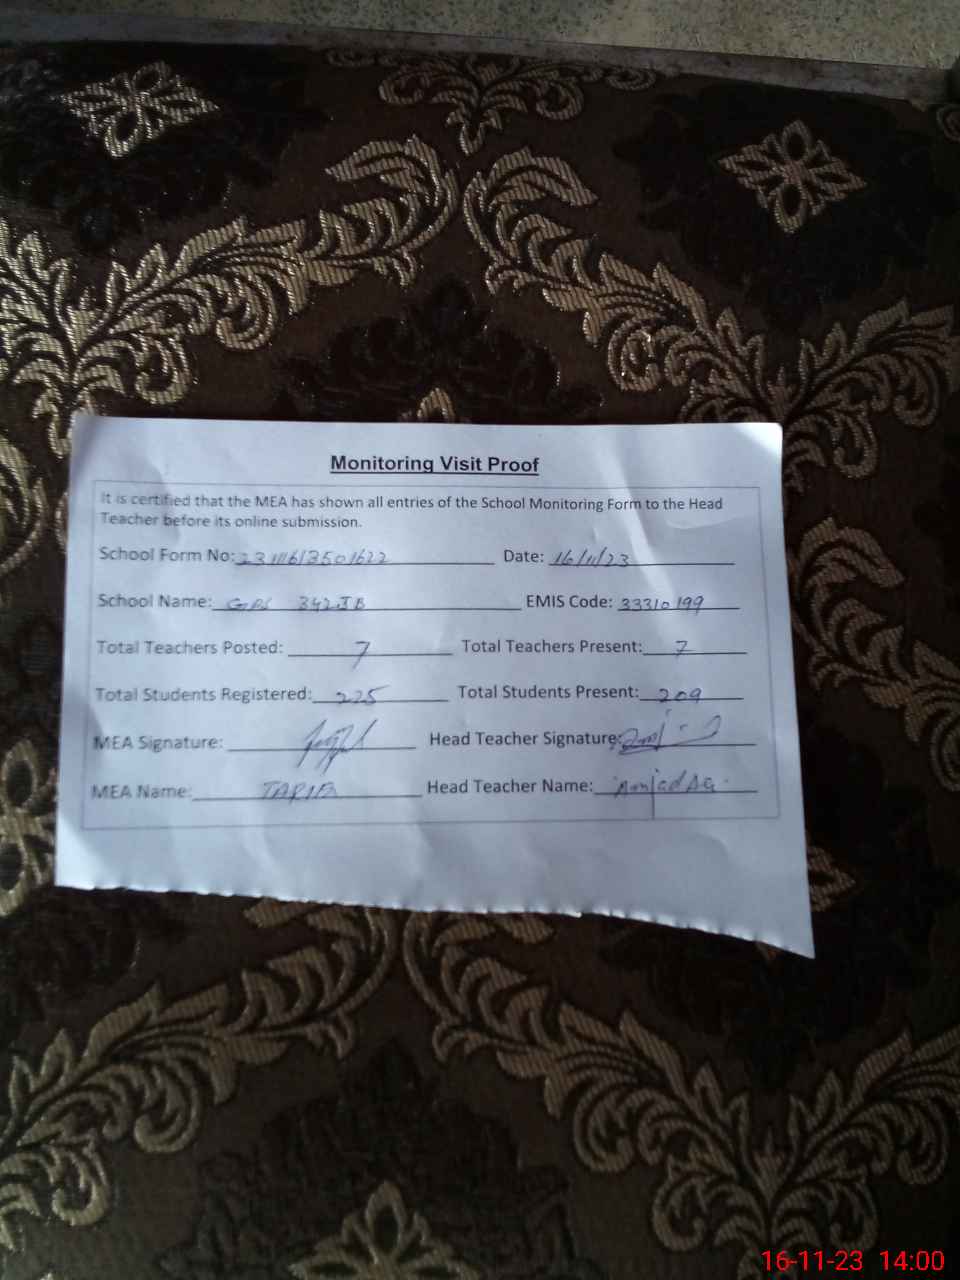 Monitoring Visit Proof
It is certified that the MEA has shown all entries of the School Monitoring Form to the Head
Teacher before its online submission.
School Form No: 23111613501622 Date: 16/11/23
School Name: GPS 342JB EMIS Code: 33310199
Total Teachers Posted: 7 Total Teachers Present: 7
Total Students Registered: 225 Total Students Present: 209
MEA Signature: Head Teacher Signature:
MEA Name: Head Teacher Name: Amjad
16-11-23 14:00